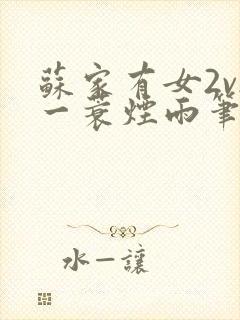 蘇家有女2v
一蓑煙雨筆
水一讓